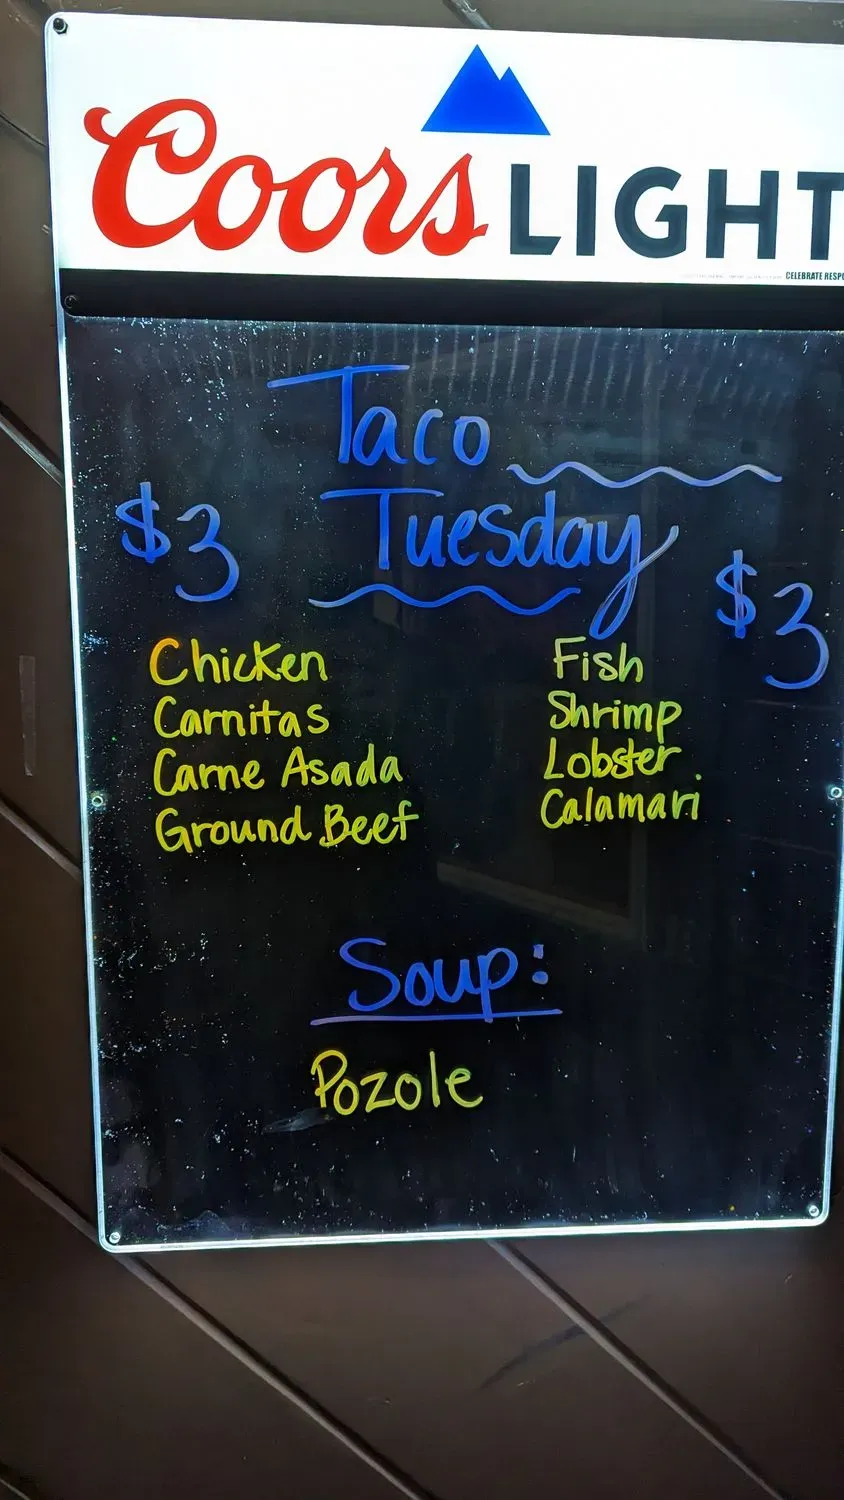 Coors LIGHT
CELEBRATE RESPO
Taco
Tuesday
$3
$3
Chicken
Carnitas
Carne Asada
Ground Beef
Fish
Shrimp
Lobster
Calamari
Soup:
Pozole